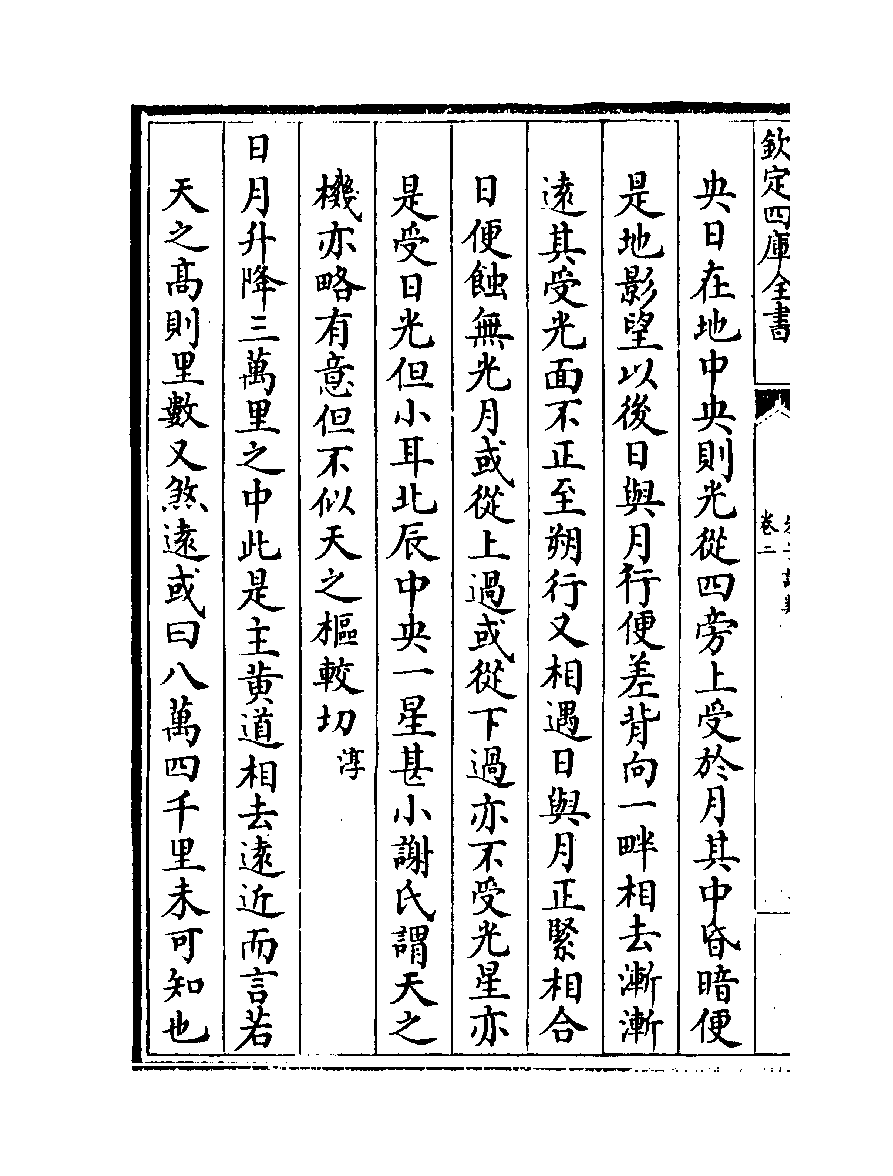 欽定四庫全書
卷二
央日在地中央則光從四旁上受於月其中昏暗便
是地影望以後日與月行便差背向一畔相去漸漸
遠其受光面不正至朔行又相遇日與月正緊相合
日便蝕無光月或從上過或從下過亦不受光星亦
是受日光但小耳北辰中央一星甚小謝氏謂天之
機亦略有意但不似天之樞較切淳
日月升降三萬里之中此是主黄道相去遠近而言若
天之髙則里數又煞遠或曰八萬四千里未可知也